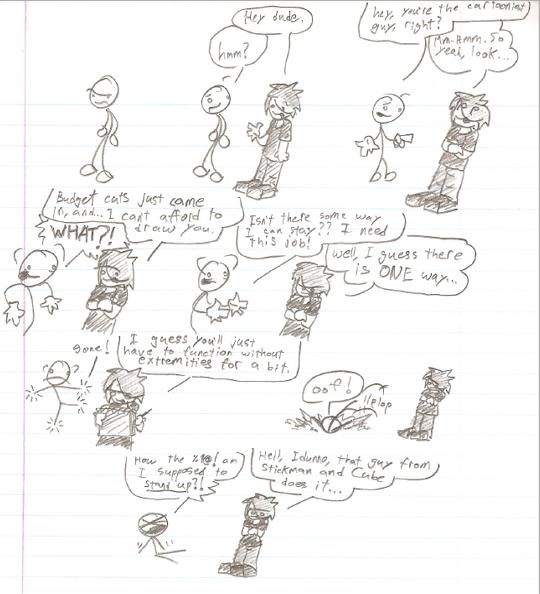 Hey dude.
hmm?
hey, you're the cartoonist
guy, right?
Mm-hmm. So
yeah, look...
Budget cuts just came
in, and... I can't afford to
draw you.
WHAT?!
Isn't there some way
I can stay?? I need
this job!
Well, I guess there
is ONE way...
I guess you'll just
have to function without
extremities for a bit.
gone!
oof!
flop
How the %!@! am
I supposed to
stand up?!
Hell, I dunno, that guy from
Stickman and Cube
does it...